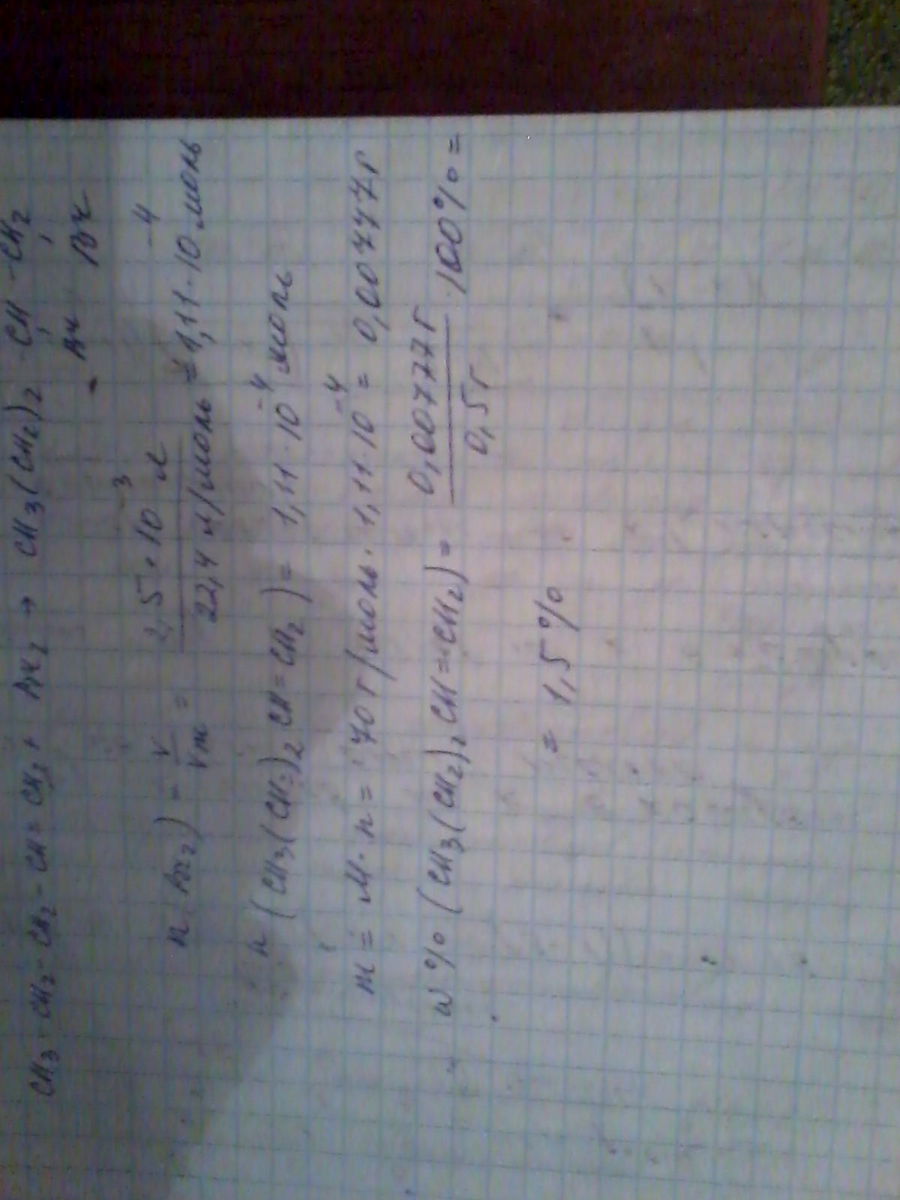 CH3-CH2-CH2-CH=CH2 + Br2 → CH3(CH2)2-CH-CH2
Br Br
n(Br2) = V/Vm = 2,5·10^-3 л / 22,4 л/моль = 1,11·10^-4 моль
n(CH3(CH2)2CH=CH2) = 1,11·10^-4 моль
m = M·n = 70 г/моль·1,11·10^-4 = 0,00777 г
w%(CH3(CH2)2CH=CH2) = 0,00777 г / 0,5 г · 100% =
= 1,5%